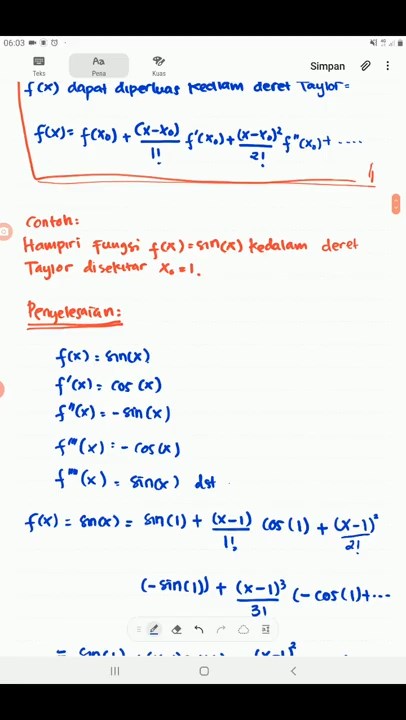 06:03
Teks
Pena
Kuas
Simpan
f(x) dapat diperluas kedlam deret Taylor=
f(x) = f(x₀) + (x-x₀)/1! f'(x₀) + (x-x₀)²/2! f"(x₀) + ....
Contoh:
Hampiri Fungsi f(x) = sin(x) kedalam deret
Taylor disekitar x₀ = 1.
Penyelesaian:
f(x) = sin(x)
f'(x) = cos (x)
f"(x) = - sin (x)
f"'(x) = - cos(x)
f""(x) = sin(x) dst
f(x) = sin(x) = sin(1) + (x-1)/1! cos(1) + (x-1)²/2!
(-sin(1)) + (x-1)³/3! (-cos(1) + ...